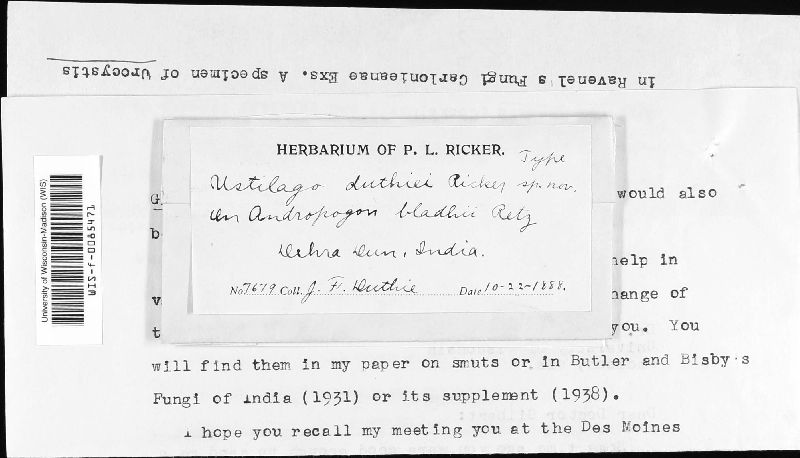 in Ravenel's Fungi Carlonieaneae Exs. A specimen of Urocystis
HERBARIUM OF P. L. RICKER.
Type
Ustilago duthiei Ricker sp. nov.
On Andropogon bladhii Retz
Dehra Dun, India.
No 7679 Coll. J. F. Duthie Date 10-22-1888.
University of Wisconsin-Madison (WIS)
WIS-f-0065471
G would also
b
help in
v hange of
t you. You
will find them in my paper on smuts or in Butler and Bisby's
Fungi of India (1931) or its supplement (1938).
I hope you recall my meeting you at the Des Moines